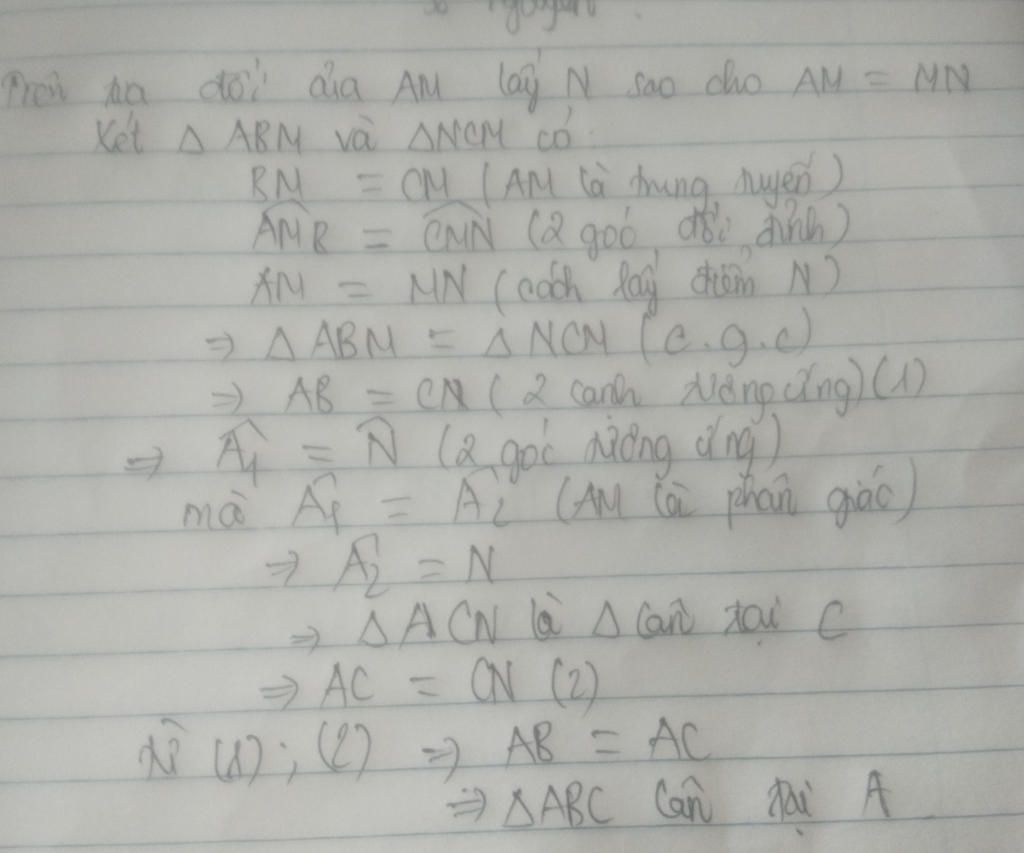 Trên tia đối của AM lấy N sao cho AM = MN
Xét Δ ABM và ΔNCM có:
BM = CM (AM là trung tuyến)
\widehat{AMB} = \widehat{CMN} (2 góc đối đỉnh)
AM = MN (cách lấy điểm N)
⇒ Δ ABM = Δ NCM (c.g.c)
⇒ AB = CN (2 cạnh tương ứng) (1)
⇒ \widehat{A_1} = \widehat{N} (2 góc tương ứng)
mà \widehat{A_1} = \widehat{A_2} (AM là phân giác)
⇒ \widehat{A_2} = N
⇒ Δ ACN là Δ cân tại C
⇒ AC = CN (2)
Từ (1); (2) ⇒ AB = AC
⇒ ΔABC cân tại A